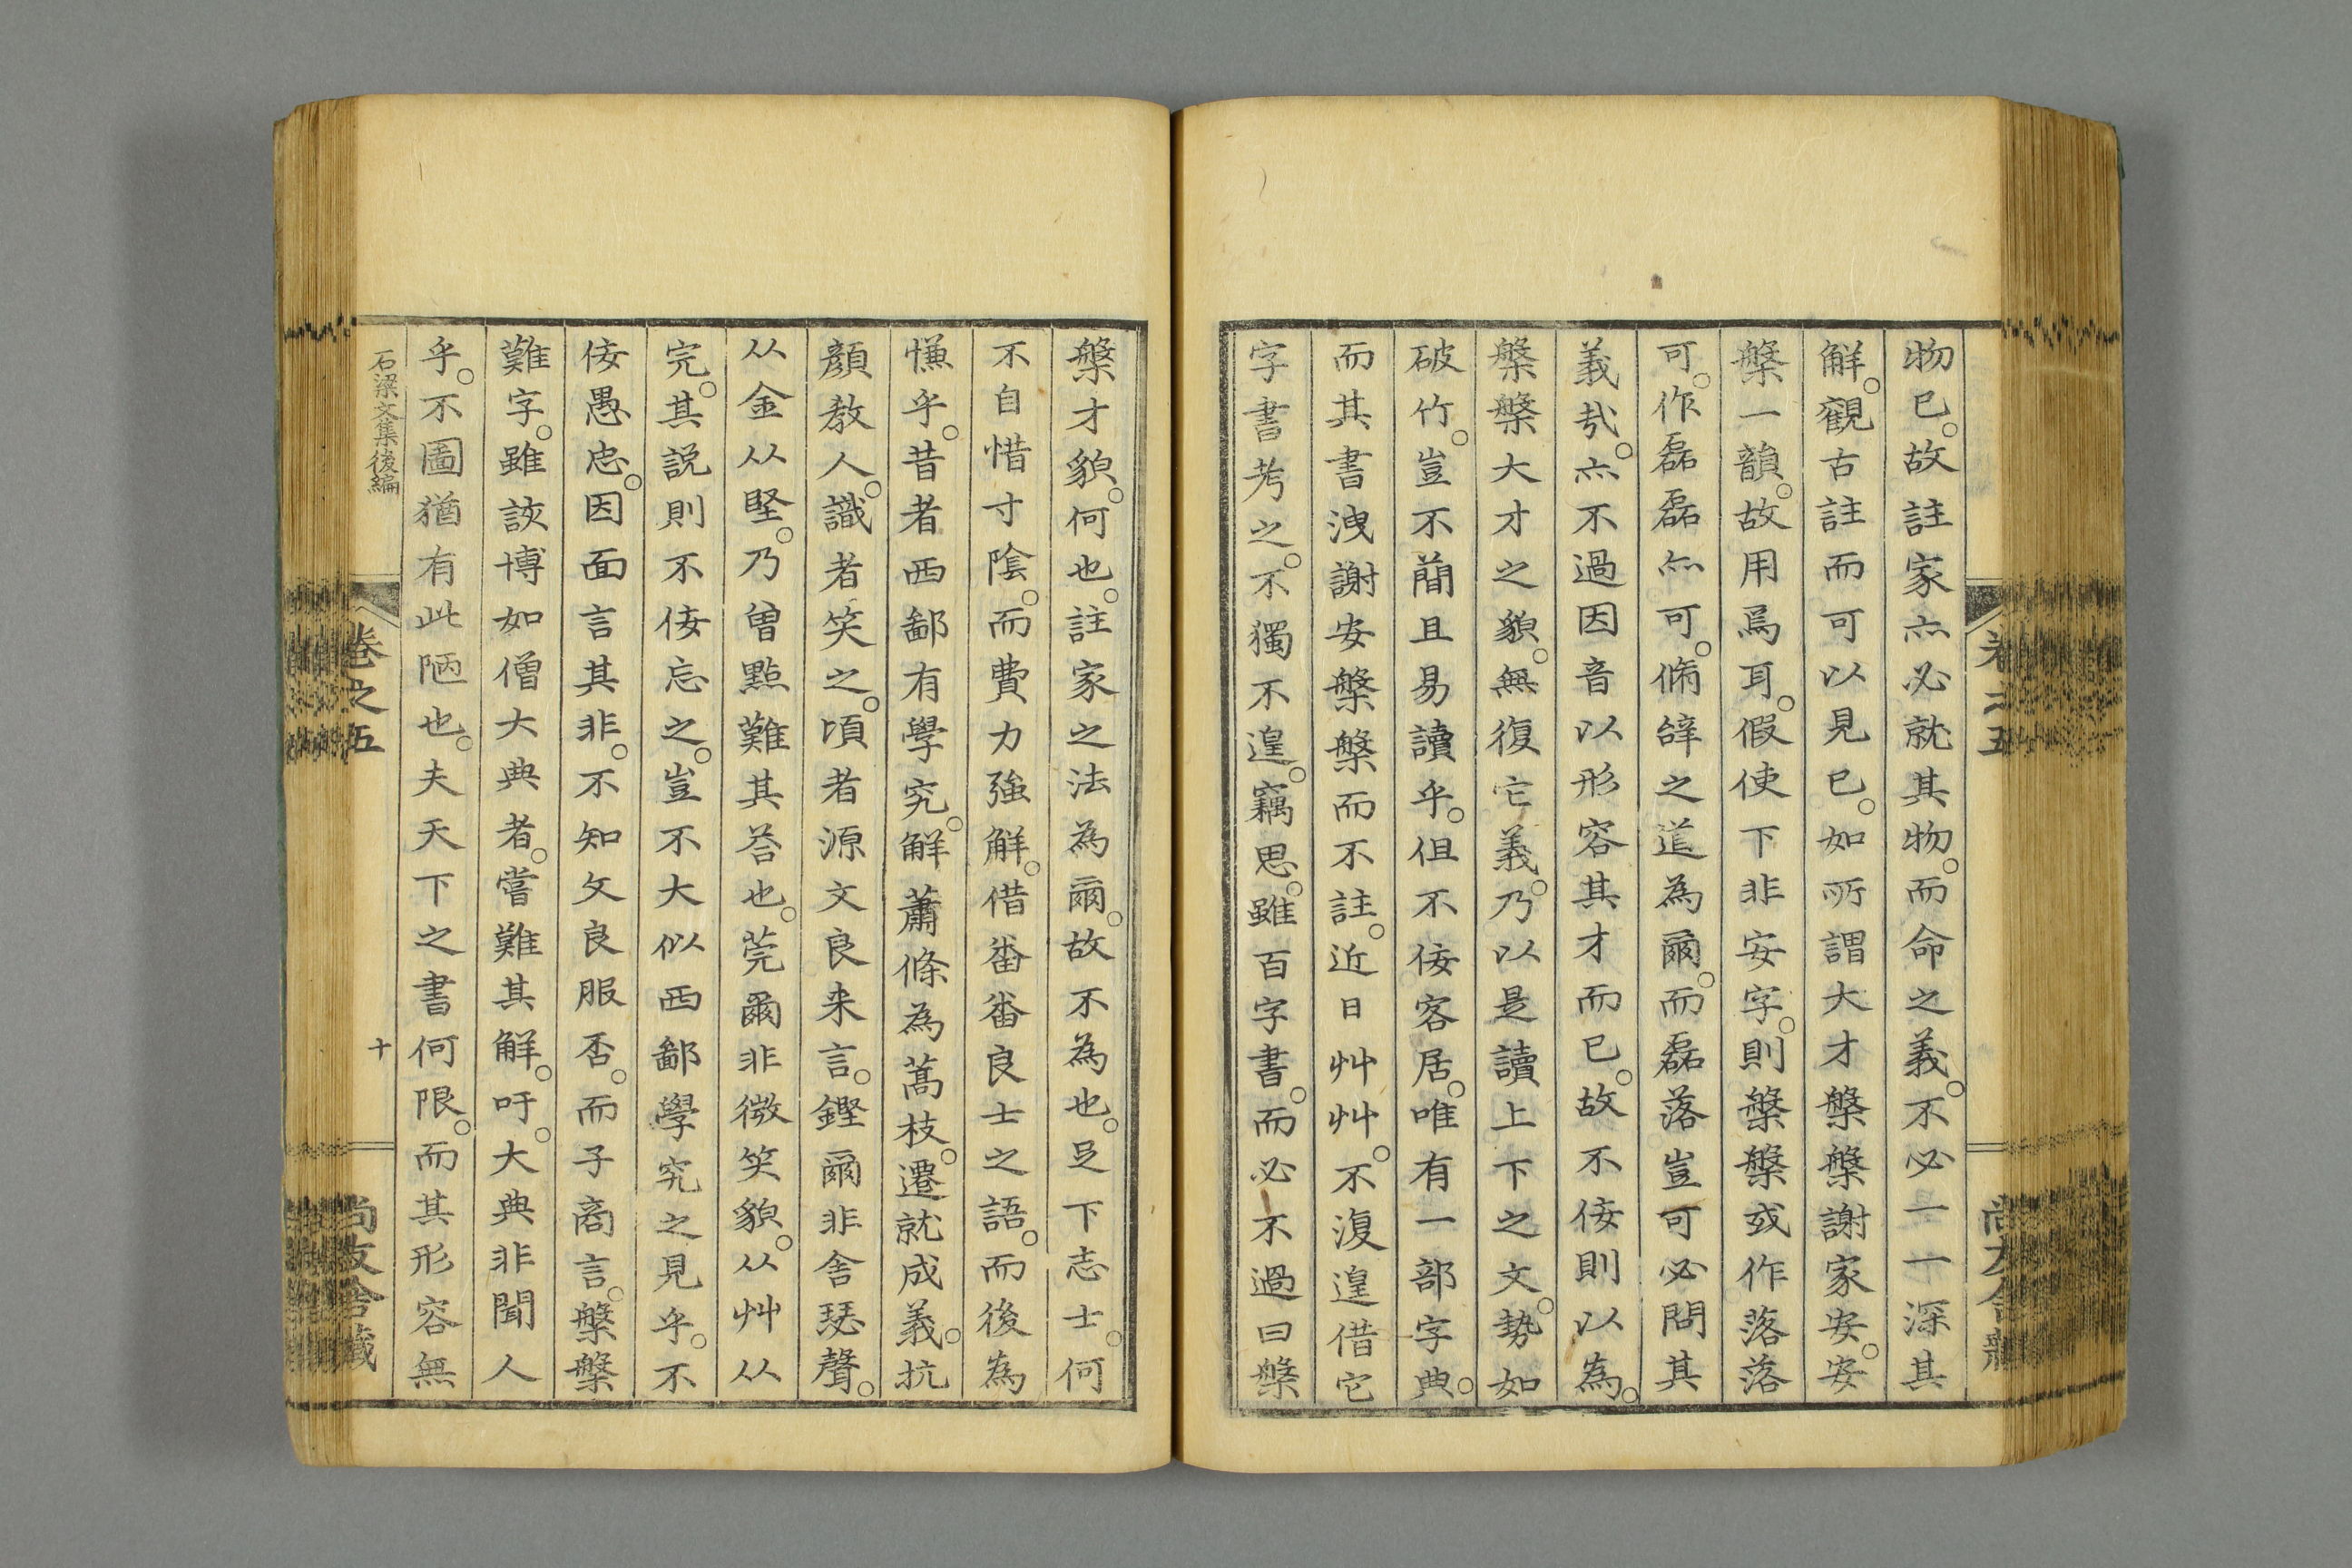 物已。故註家亦必就其物。而命之義。不必一一深其
解。觀古註而可以見已。如所謂大才槃槃謝家安。安
槃一韻。故用焉耳。假使下非安字。則槃槃或作落落
可。作磊磊亦可。脩辭之道為爾。而磊落豈可必問其
義哉。亦不過因音以形容其才而已。故不侫則以為。
槃槃大才之貌。無復它義。乃以是讀上下之文。勢如
破竹。豈不簡且易讀乎。但不侫客居。唯有一部字典。
而其書洩謝安槃槃而不註。近日艸艸。不復遑借它
字書考之。不獨不遑。竊思。雖百字書。而必不過曰槃
槃才貌。何也。註家之法為爾。故不為也。足下志士。何
不自惜寸陰。而費力強解。借畨畨良士之語。而後為
慊乎。昔者西鄙有學究。解蕭條為蒿枝。遷就成義。抗
顏教人。識者笑之。頃者源文良来言。鏗爾非舍瑟聲。
从金从堅。乃曾點難其荅也。莞爾非微笑貌。从艸从
完。其説則不侫忘之。豈不大似西鄙學究之見乎。不
侫愚忠。因面言其非。不知文良服否。而子商言。槃槃
難字。雖該博如僧大典者。嘗難其解。吁。大典非聞人
乎。不圖猶有此陋也。夫天下之書何限。而其形容無
石梁文集後編
卷之五
十
尚友舍藏